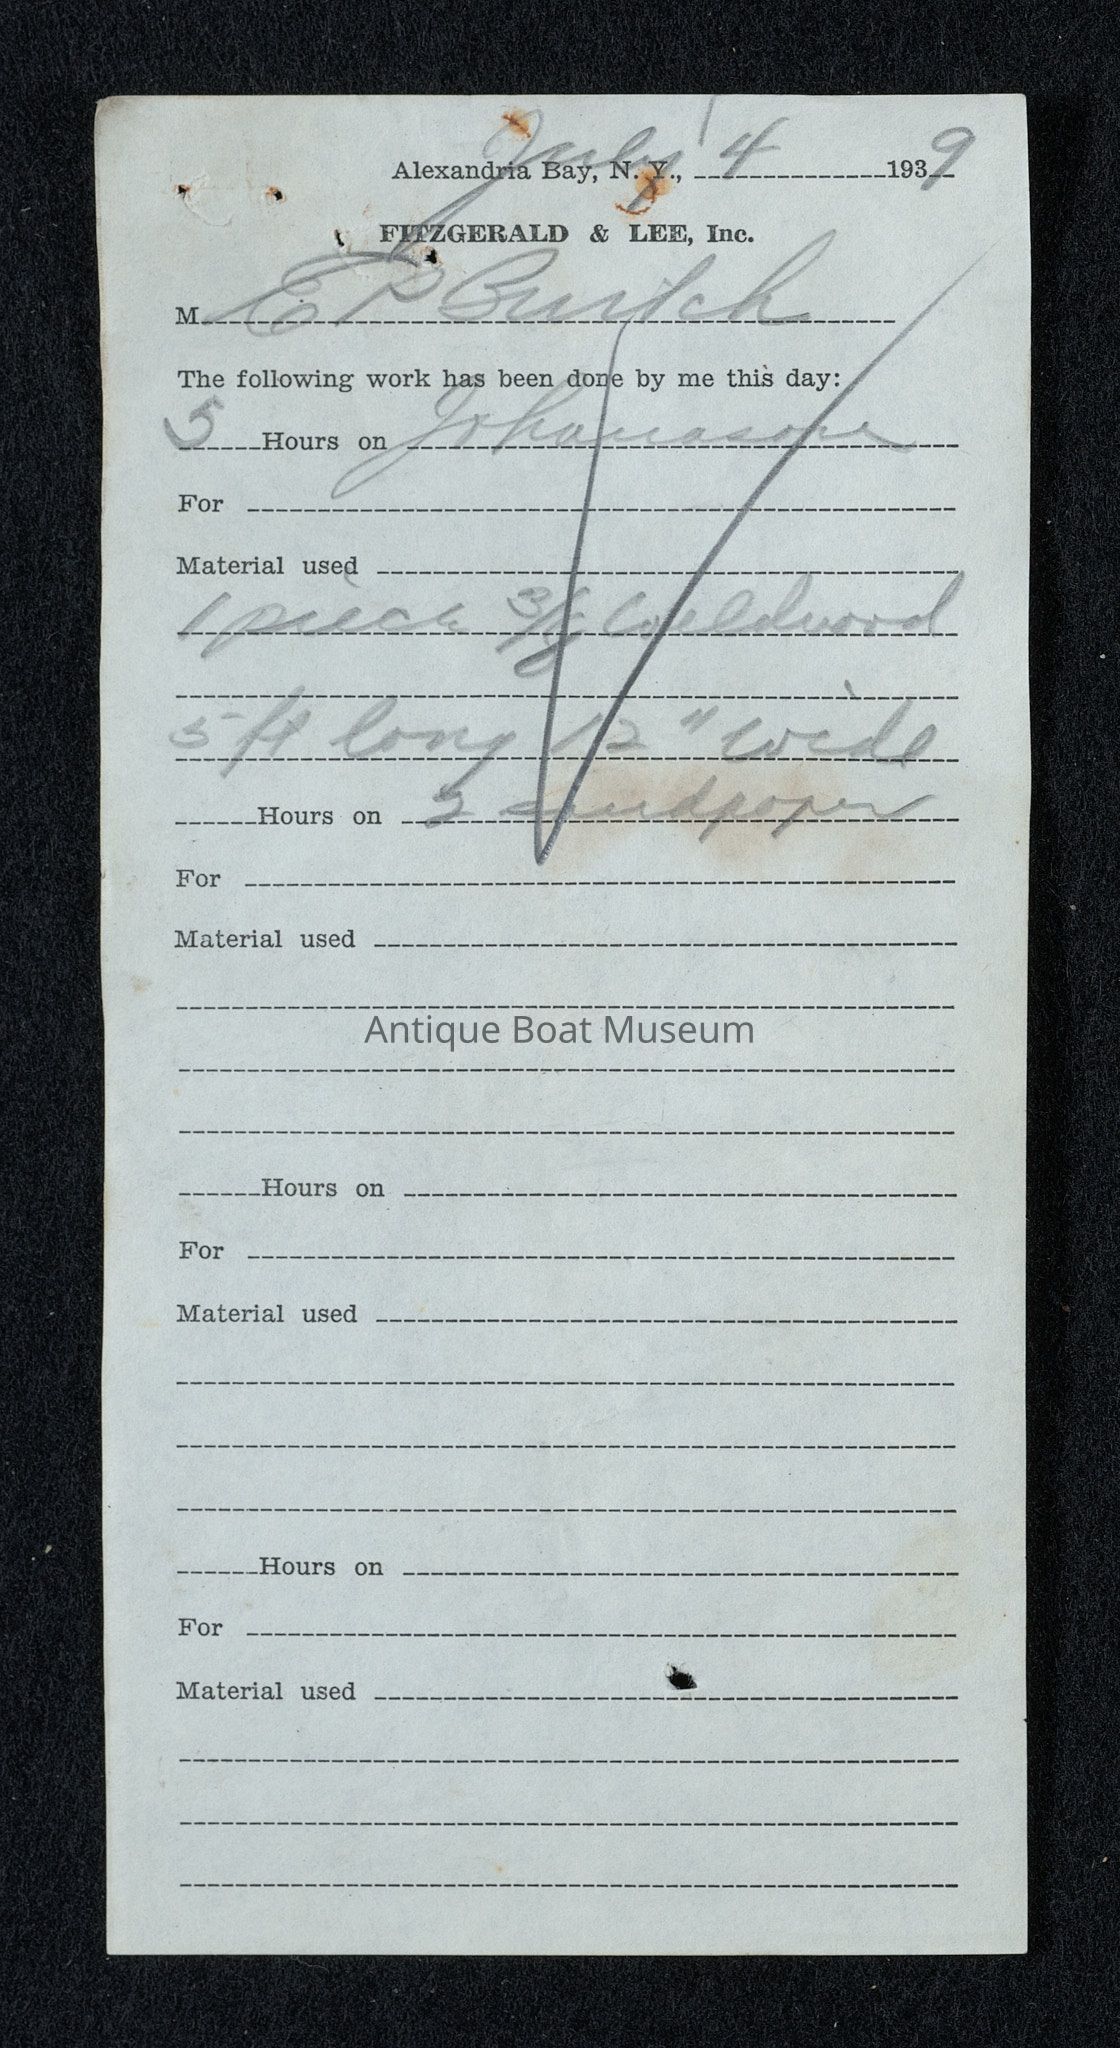 July 4
Alexandria Bay, N. Y., 1939
FITZGERALD & LEE, Inc.
M E P
The following work has been done by me this day:
5 Hours on
For
Material used
1 piece 3/8 Weldwood
5 ft long 12" wide
Hours on 2 sandpaper
For
Material used
Antique Boat Museum
Hours on
For
Material used
Hours on
For
Material used